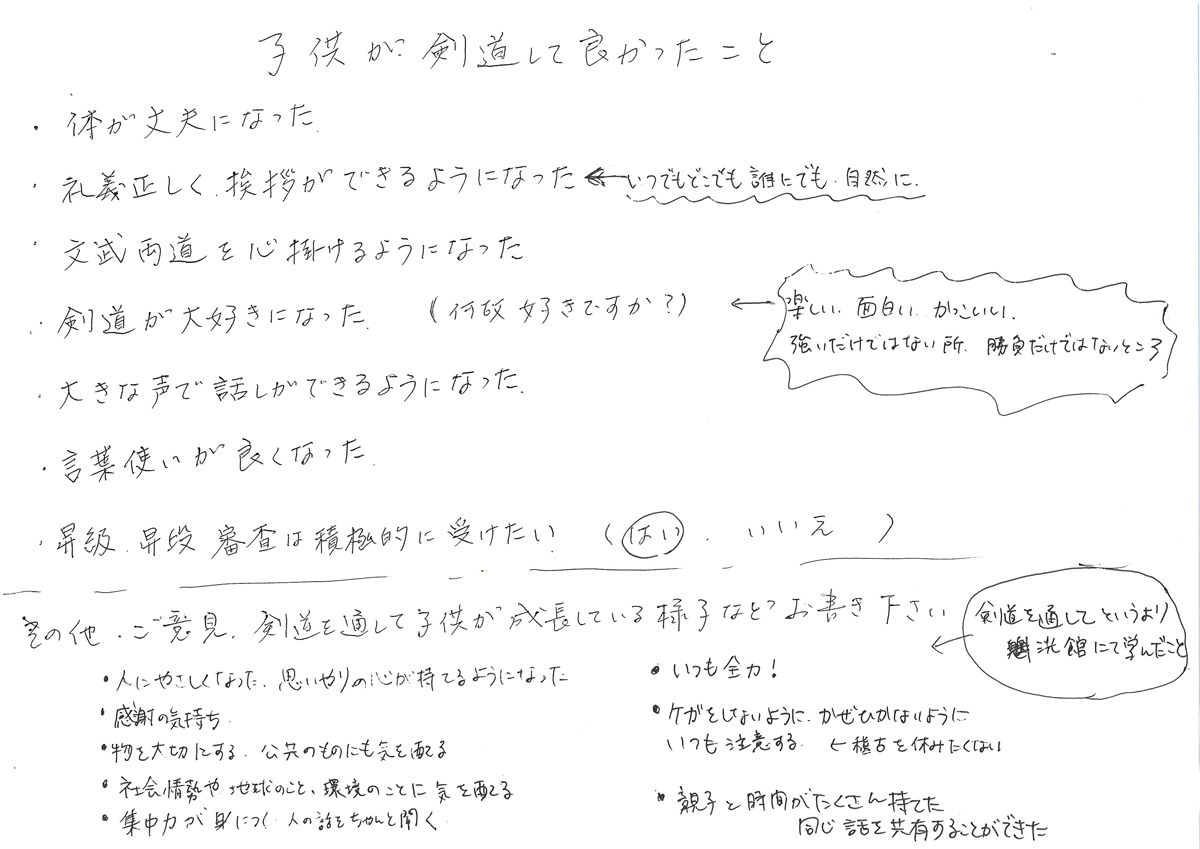 子供が剣道して良かったこと
・体が丈夫になった.
・礼義正しく.挨拶ができるようになった ← いつでもどこでも誰にでも.自然に.
・文武両道を心掛けるようになった
・剣道が大好きになった. (何故好きですか?) ← 楽しい.面白い.かっこいい.
強いだけではない所.勝負だけではないところ
・大きな声で話しができるようになった.
・言葉使いが良くなった.
・昇級.昇段審査は積極的に受けたい (はい.いいえ)
その他.ご意見.剣道を通して子供が成長している様子などお書き下さい
← 剣道を通してというより
洗館にて学んだこと
・人にやさしくなった.思いやりの心が持てるようになった
・感謝の気持ち.
・物を大切にする.公共のものにも気を配る
・社会情勢や地球のこと、環境のことに気を配る
・集中力が身につく.人の話をちゃんと聞く.
・いつも全力!
・ケガをしないように.かぜひかないように
いつも注意する. ← 稽古を休みたくない
・親子と時間がたくさん持てた
同じ話を共有することができた